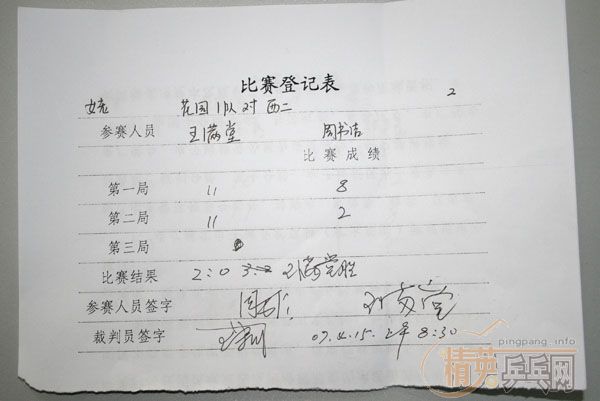 比赛登记表
花园1队对西二 2
参赛人员 王满堂 周书洁
比赛成绩
第一局 11 8
第二局 11 2
第三局
比赛结果 2:0 王满堂胜
参赛人员签字 王满堂
裁判员签字 07.4.15.上午8:30
pingpang.info
精英乒乓网